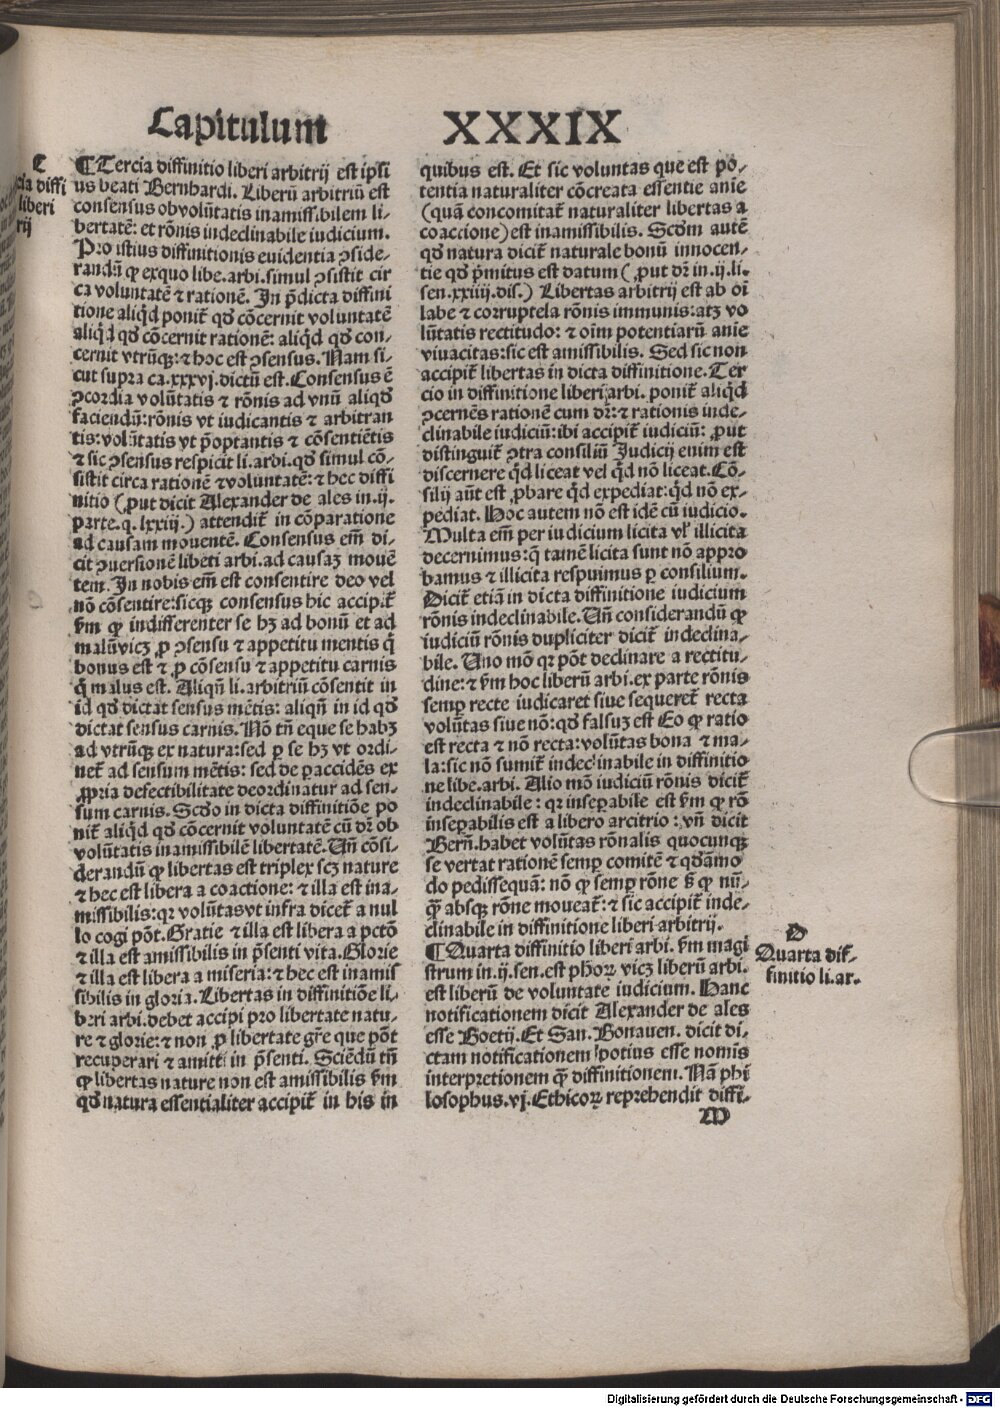 Capitulum XXXIX
C
cia diffi
liberi
rij
¶ Tercia diffinitio liberi arbitrij est ipsi
us beati Bernhardi. Liberū arbitriū est
consensus ob volūtatis inamissibilem li⸗
bertatē: et rōnis indeclinabile iudicium.
Pro istius diffinitionis euidentia ꝯside⸗
randū ꝙ ex quo libe. arbi. simul ꝯsistit cir
ca voluntatē ⁊ rationē. In p̄dicta diffini
tione aliqd̄ ponit᷑ qd̄ cōcernit voluntatē
aliqd̄ qd̄ cōcernit rationē: aliqd̄ qd̄ con⸗
cernit vtrūqꝫ: ⁊ hoc est ꝯsensus. Nam si⸗
cut supra ca. xxxvj. dictū est. Consensus ē
ꝯcordia volūtatis ⁊ rōnis ad vnū aliqd̄
faciendū: rōnis vt iudicantis ⁊ arbitran
tis: volūtatis vt p̄optantis ⁊ cōsentiētis
⁊ sic ꝯsensus respicit li. arbi. qd̄ simul cō⸗
sistit circa rationē ⁊ voluntatē: ⁊ hec diffi
nitio (ꝓut dicit Alexander de ales in. ij.
parte. q. lxxiij.) attendit᷑ in cōparatione
ad causam mouentē. Consensus em̄ di⸗
cit ꝯuersionē liberi arbi. ad causaꝫ mouē
tem. In nobis em̄ est consentire deo vel
nō cōsentire: sicqꝫ consensus hic accipit᷑
ẜm ꝙ indifferenter se hꝫ ad bonū et ad
malū vicꝫ ꝓ ꝯsensu ⁊ appetitu mentis q̄
bonus est ⁊ ꝓ cōsensu ⁊ appetitu carnis
q̄ malus est. Aliqn̄ li. arbitriū cōsentit in
id qd̄ dictat sensus mētis: aliqn̄ in id qd̄
dictat sensus carnis. Nō tn̄ eque se habꝫ
ad vtrūqꝫ ex natura: sed ꝑ se hꝫ vt ordi⸗
net᷑ ad sensum mētis: sed de ꝑ accidēs ex
ꝓpria defectibilitate deordinatur ad sen⸗
sum carnis. Scd̄o in dicta diffinitiōe po
nit᷑ aliqd̄ qd̄ cōcernit voluntatē cū dr̄ ob
volūtatis inamissibilē libertatē. Vn̄ cōsi⸗
derandū ꝙ libertas est triplex scꝫ nature
⁊ hec est libera a coactione: ⁊ illa est ina⸗
missibilis: qr voluntas vt infra dicet᷑ a nul
lo cogi pōt. Gratie ⁊ illa est libera a pctō
⁊ illa est amissibilis in p̄senti vita. Glorie
⁊ illa est libera a miseria: ⁊ hec est inamis
sibilis in gloria. Libertas in diffinitiōe li⸗
beri arbi. debet accipi pro libertate natu⸗
re ⁊ glorie: ⁊ non ꝓ libertate gr̄e que pōt
recuperari ⁊ amitti in p̄senti. Sciēdū tn̄
ꝙ libertas nature non est amissibilis ẜm
qd̄ natura essentialiter accipit᷑ in his in
quibus est. Et sic voluntas que est po⸗
tentia naturaliter cōcreata essentie anie
(quā concomitat᷑ naturaliter libertas a
coactione) est inamissibilis. Scd̄m autē
qd̄ natura dicit᷑ naturale bonū innocen⸗
tie qd̄ p̄mitus est datum (ꝓut dr̄ in. ij. li.
sen. xxiiij. dis.) Libertas arbitrij est ab oī
labe ⁊ corruptela rōnis immunis: atꝫ vo
lūtatis rectitudo: ⁊ oīm potentiarū anie
viuacitas: sic est amissibilis. Sed sic non
accipit᷑ libertas in dicta diffinitione. Ter
cio in diffinitione liberi arbi. ponit᷑ aliqd̄
ꝯcernēs rationē cum dr̄: ⁊ rationis inde⸗
clinabile iudiciū: ibi accipit᷑ iudiciū: ꝓut
distinguit᷑ ꝯtra consiliū Judicij enim est
discernere qd̄ liceat vel qd̄ nō liceat. Cō⸗
silij aūt est ꝓbare qd̄ expediat: qd̄ nō ex⸗
pediat. Hoc autem nō est idē cū iudicio.
Multa em̄ per iudicium licita vl̓ illicita
decernimus: q̄ tamē licita sunt nō appro
bamus ⁊ illicita respuimus ꝑ consilium.
Dicit᷑ etiā in dicta diffinitione iudicium
rōnis indeclinabile. Vn̄ considerandū ꝙ
iudiciū rōnis dupliciter dicit᷑ indeclina⸗
bile. Uno mō qr pōt declinare a rectitu⸗
dine: ⁊ ẜm hoc liberū arbi. ex parte rōnis
semꝑ recte iudicaret siue sequeret᷑ recta
volūtas siue nō: qd̄ falsuꝫ est Eo ꝙ ratio
est recta ⁊ nō recta: volūtas bona ⁊ ma⸗
la: sic nō sumit᷑ indeclinabile in diffinitio
ne libe. arbi. Alio mō iudiciū rōnis dicit᷑
indeclinabile: qr inseꝑabile est ẜm ꝙ rō
inseꝑabilis est a libero arcitrio: vn̄ dicit
Bern̄. habet volūtas rōnalis quocunqꝫ
se vertat rationē semꝑ comitē ⁊ qd̄āmo
do pedissequā: nō ꝙ semꝑ rōne s̄ ꝙ nū⸗
q̄ absqꝫ rōne moueat᷑: ⁊ sic accipit᷑ inde⸗
clinabile in diffinitione liberi arbitrij.
¶ Quarta diffinitio liberi arbi. ẜm magi
strum in. ij. sen. est phoꝝ vicꝫ liberū arbi.
est liberū de voluntate iudicium. Hanc
notificationem dicit Alexander de ales
esse Boetij. Et San. Bonauen. dicit di⸗
ctam notificationem potius esse nomīs
interpretionem q̄ diffinitionem. Nā phi
losophus. vj. Ethicoꝝ reprehendit diffi⸗
D
Quarta dif⸗
finitio li. ar.
M
Digitalisierung gefördert durch die Deutsche Forschungsgemeinschaft - DFG